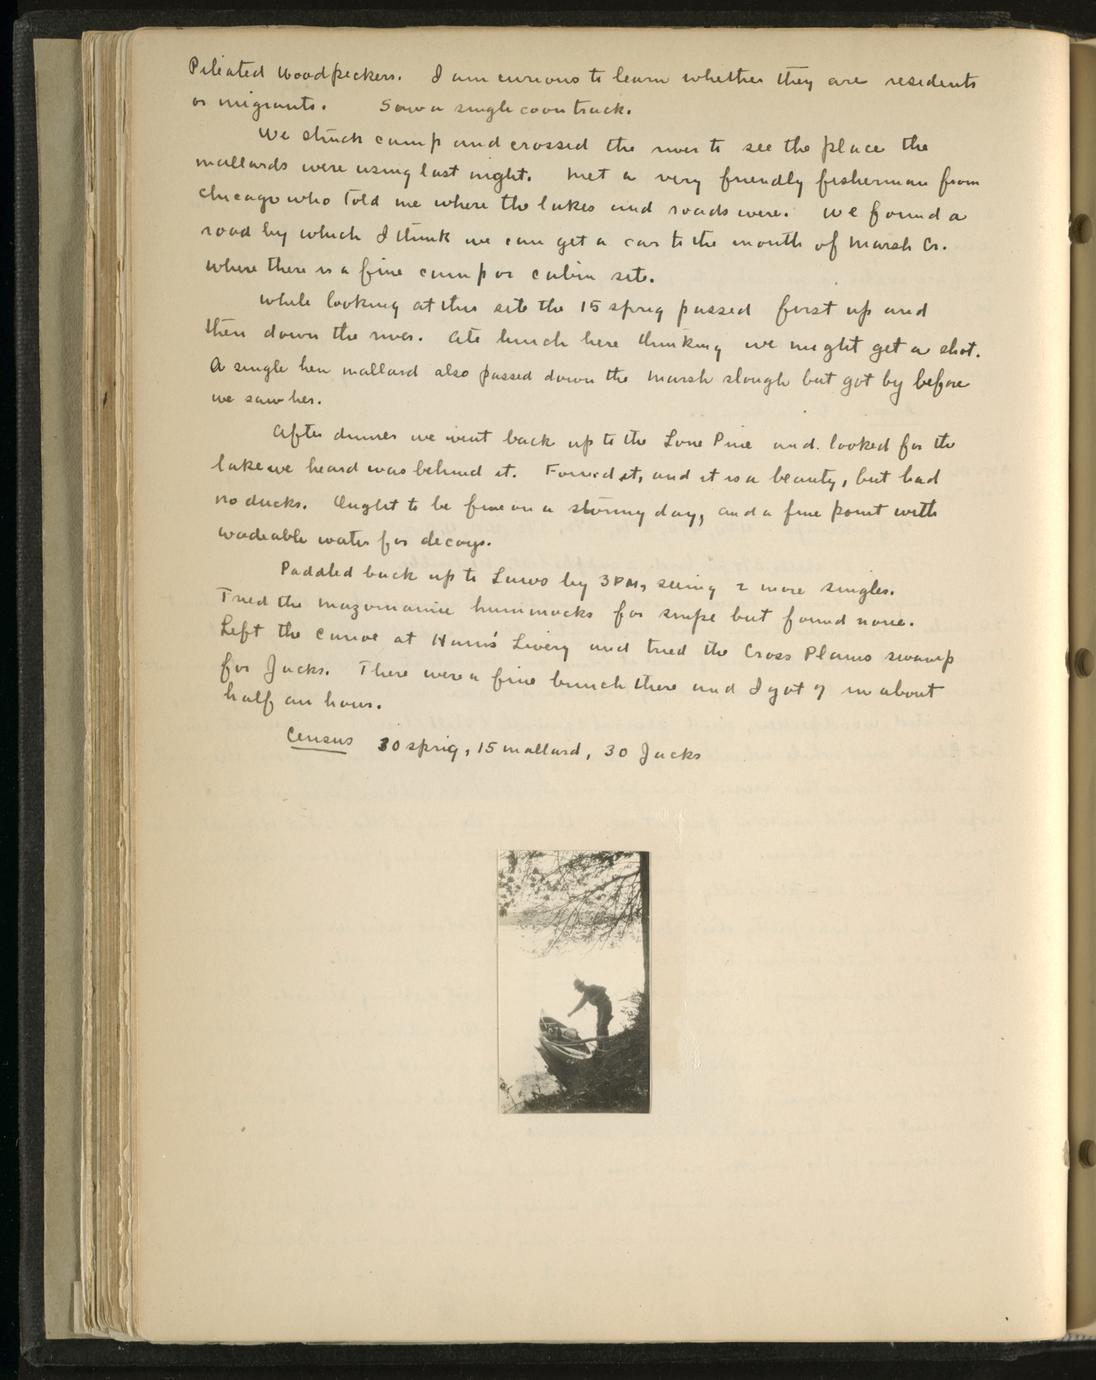 Pileated Woodpeckers. I am curious to learn whether they are residents
or migrants. Saw a single coon track.
We struck camp and crossed the river to see the place the
mallards were using last night. Met a very friendly fisherman from
Chicago who told me where the lakes and roads were. We found a
road by which I think we can get a car to the mouth of Marsh Cr.
where there is a fine camp or cabin site.
While looking at this site the 15 sprig passed first up and
then down the river. Ate lunch here thinking we might get a shot.
A single hen mallard also passed down the Marsh slough but got by before
we saw her.
After dinner we went back up to the Lone Pine and looked for the
lake we heard was behind it. Found it, and it is a beauty, but had
no ducks. Ought to be fine on a stormy day, and a fine point with
wadeable water for decoys.
Paddled back up to by 3PM, seeing 2 more singles.
Tried the Mazomanie hummocks for snipe but found none.
Left the canoe at Livery and tried the Cross Plains swamp
for Jacks. There were a fine bunch there and I got 7 in about
half an hour.
Census 30 sprig, 15 mallard, 30 Jacks